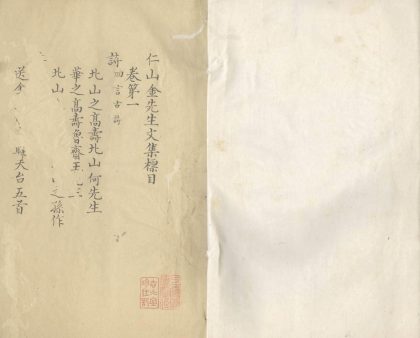 仁山金先生文集標目
卷第一
詩四言古詩
北山之高壽北山何先生
華之高壽魯齋王
北山 之孫作
送 天台五首